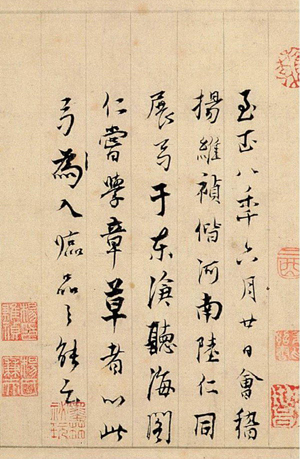 至正八年六月廿日會稽
揚維禎偕河南陸仁同
展弓于東滄聽海閣
仁嘗學章草者以此
弓為入臨品之能云